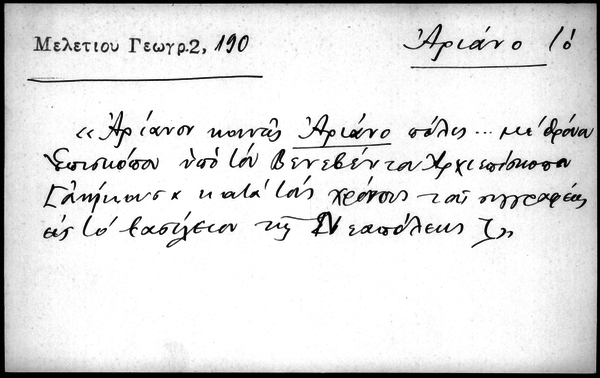 Μελετίου Γεωγρ. 2, 190
Ἀριάνο τό
«Ἀρίανον κοινῶς Ἀριάνο πόλις ... μέ θρόνον
Ἐπισκόπου ὑπό τόν Βενεβέντου Ἀρχιεπίσκοπον
κατά τούς χρόνους τοῦ συγγραφέως
εἰς τό βασίλειον τῆς Νεαπόλεως »